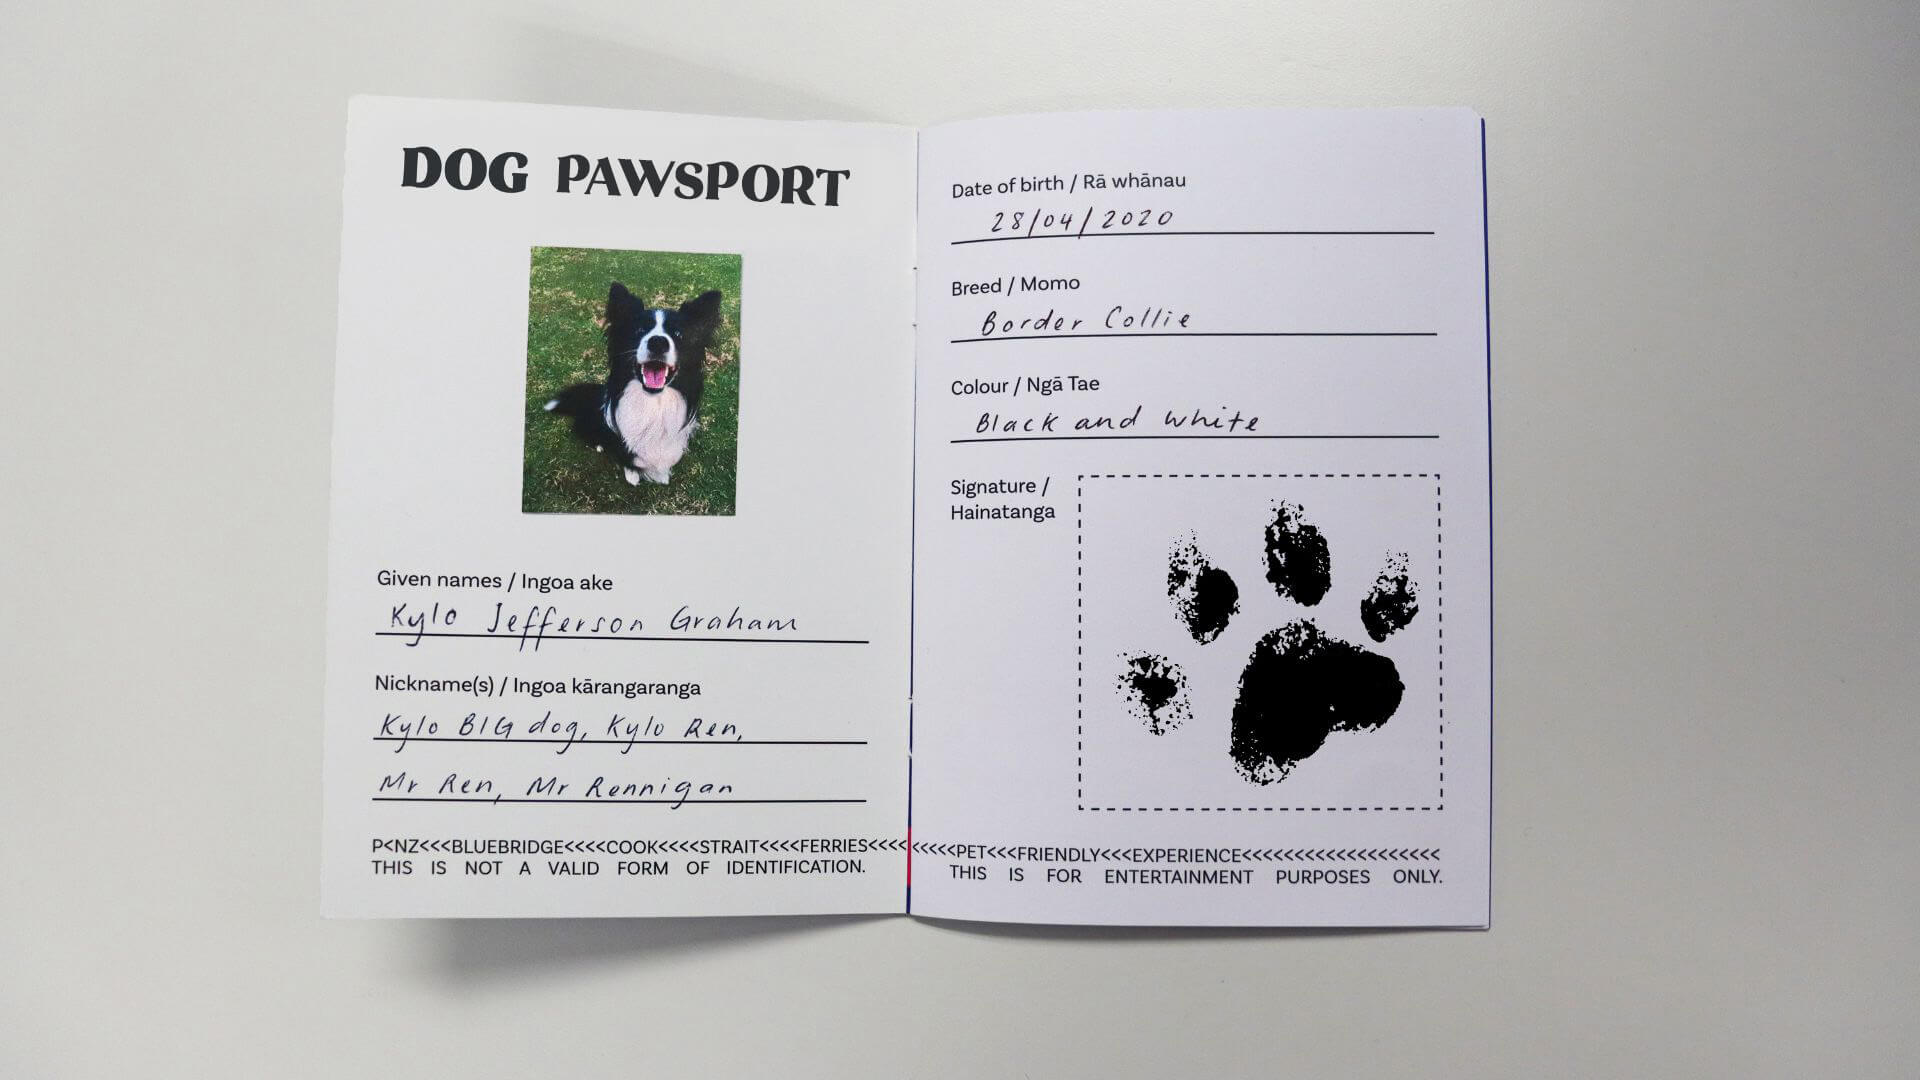 DOG PAWSPORT
Given names / Ingoa ake
Kylo Jefferson Graham
Nickname(s) / Ingoa kārangaranga
Kylo BIG dog, Kylo Ren,
Mr Ren, Mr Rennigan
P<NZ<<<BLUEBRIDGE<<<<COOK<<<<STRAIT<<<<FERRIES<<<<
THIS IS NOT A VALID FORM OF IDENTIFICATION.
Date of birth / Rā whānau
28/04/2020
Breed / Momo
Border Collie
Colour / Ngā Tae
Black and white
Signature /
Hainatanga
<<<<<PET<<<FRIENDLY<<<EXPERIENCE<<<<<<<<<<<<<<<<<<<
THIS IS FOR ENTERTAINMENT PURPOSES ONLY.